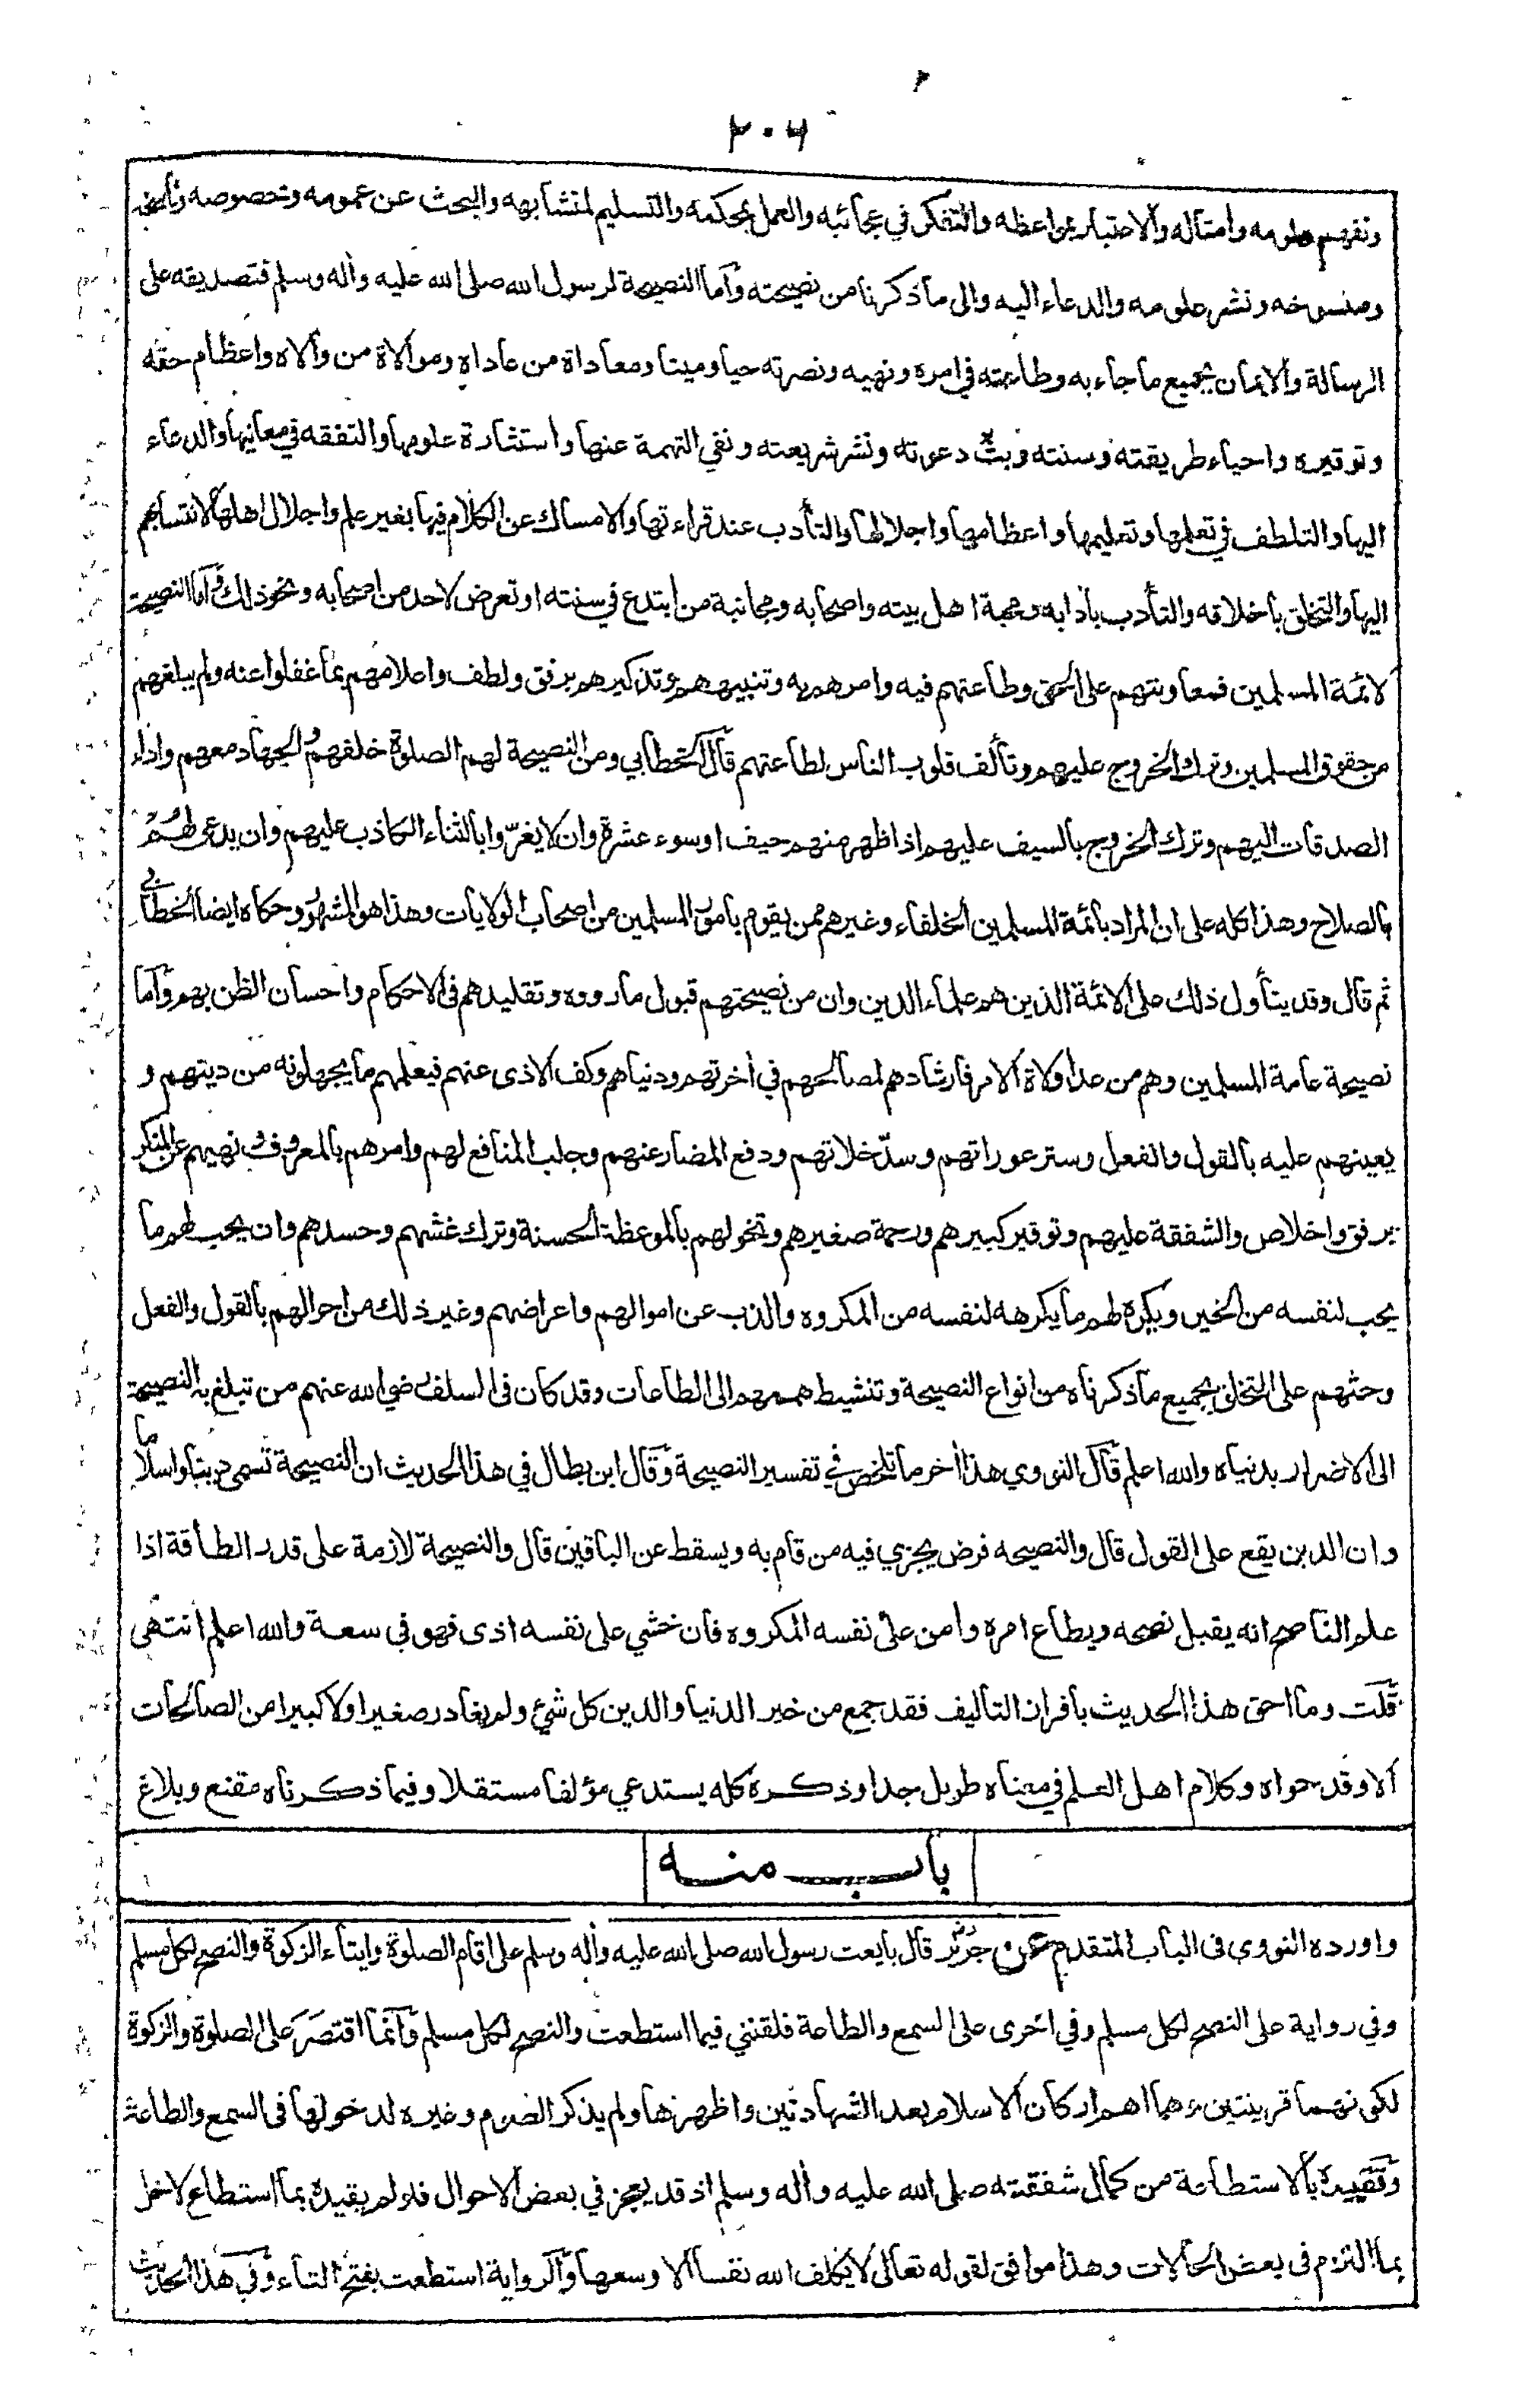 ٢٠٦
وتفهم علومه وامثاله والاعتبار بمواعظه والتفكر في عجائبه والعمل بمحكمه والتسليم لمتشابهه والبحث عن عمومه وخصوصه وناسخه
ومنسوخه ونشر علومه والدعاء اليه والى ما ذكرنا من نصيحته وآما النصيحة لرسول الله صلى الله عليه وآله وسلم فتصديقه على
الرسالة والايمان بجميع ما جاء به وطاعته في امره ونهيه ونصرته حيا وميتا ومعاداة من عاداه وموالاة من والاه واعظام حقه
وتوقيره واحياء طريقته وسنته وبثّ دعوته ونشر شريعته ونفي التهمة عنها واستثارة علومها والتفقه في معانيها والدعاء
اليها والتلطف في تعلمها وتعليمها واعظامها واجلالها والتأدب عند قراءتها والامساك عن الكلام فيها بغير علم واجلال اهلها لانتسابهم
اليها والتخلق باخلاقه والتأدب بآدابه ومحبة اهل بيته واصحابه ومجانبة من ابتدع في سنته او تعرض لاحد من اصحابه ونحو ذلك وآما النصيحة
لائمة المسلمين فمعاونتهم على الحق وطاعتهم فيه وامرهم به وتنبيههم وتذكيرهم برفق ولطف واعلامهم بما غفلوا عنه ولم يبلغهم
من حقوق المسلمين وترك الخروج عليهم وتألف قلوب الناس لطاعتهم قال الخطابي ومن النصيحة لهم الصلوة خلفهم والجهاد معهم واداء
الصدقات اليهم وترك الخروج بالسيف عليهم اذا ظهر منهم حيف او سوء عشرة وان لا يغرّوا بالثناء الكاذب عليهم وان يدعى لهم
بالصلاح وهذا كله على ان المراد بائمة المسلمين الخلفاء وغيرهم ممن يقوم بامور المسلمين من اصحاب الولايات وهذا هو المشهور وحكاه ايضا الخطابي
ثم قال وقد يتأول ذلك على الائمة الذين هم علماء الدين وان من نصيحتهم قبول ما رووه وتقليدهم في الاحكام واحسان الظن بهم وآما
نصيحة عامة المسلمين وهم من عدا ولاة الامر فارشادهم لمصالحهم في آخرتهم ودنياهم وكف الاذى عنهم فيعلمهم ما يجهلونه من دينهم و
يعينهم عليه بالقول والفعل وستر عوراتهم وسدّ خلاتهم ودفع المضار عنهم وجلب المنافع لهم وامرهم بالمعروف ونهيهم عن المنكر
برفق واخلاص والشفقة عليهم وتوقير كبيرهم ورحمة صغيرهم وتخولهم بالموعظة الحسنة وترك غشهم وحسدهم وان يحب لهم ما
يحب لنفسه من الخير ويكره لهم ما يكرهه لنفسه من المكروه والذب عن اموالهم واعراضهم وغير ذلك من احوالهم بالقول والفعل
وحثهم على التخلق بجميع ما ذكرناه من انواع النصيحة وتنشيط هممهم الى الطاعات وقد كان في السلف رضي الله عنهم من تبلغ به النصيحة
الى الاضرار بدنياه والله اعلم قال النووي هذا آخر ما تلخص في تفسير النصيحة وقال ابن بطال في هذا الحديث ان النصيحة تسمى دينا واسلاما
وان الدين يقع على القول قال والنصيحه فرض يجزي فيه من قام به ويسقط عن الباقين قال والنصيحة لازمة على قدر الطاقة اذا
علم الناصح انه يقبل نصحه ويطاع امره وامن على نفسه المكروه فان خشي على نفسه اذى فهو في سعة والله اعلم انتهى
قلت وما احق هذا الحديث بافراد التأليف فقد جمع من خير الدنيا والدين كل شيء ولم يغادر صغيرا ولا كبيرا من الصالحات
الا وقد حواه وكلام اهل العلم في معناه طويل جدا وذكره كله يستدعي مؤلفا مستقلا وفيما ذكرناه مقنع وبلاغ
باب منه
واورده النووى فى الباب المتقدم عن جرير قال بايعت رسول الله صلى الله عليه وآله وسلم على اقام الصلوة وايتاء الزكوة والنصح لكل مسلم
وفي رواية على النصح لكل مسلم وفي اخرى على السمع والطاعة فلقنني فيما استطعت والنصح لكل مسلم وآنما اقتصر على الصلوة والزكوة
لكونهما قرينتين وهما اهم اركان الاسلام بعد الشهادتين واظهرها ولم يذكر الصوم وغيره لدخولها فى السمع والطاعة
وتقييده بالاستطاعة من كمال شفقته صلى الله عليه وآله وسلم اذ قد يعجز في بعض الاحوال فلو لم يقيده بما استطاع لاخل
بما التزم فى بعض الحالات وهذا موافق لقوله تعالى لا يكلف الله نفسا الا وسعها والرواية استطعت بفتح التاء وفي هذا الحديث